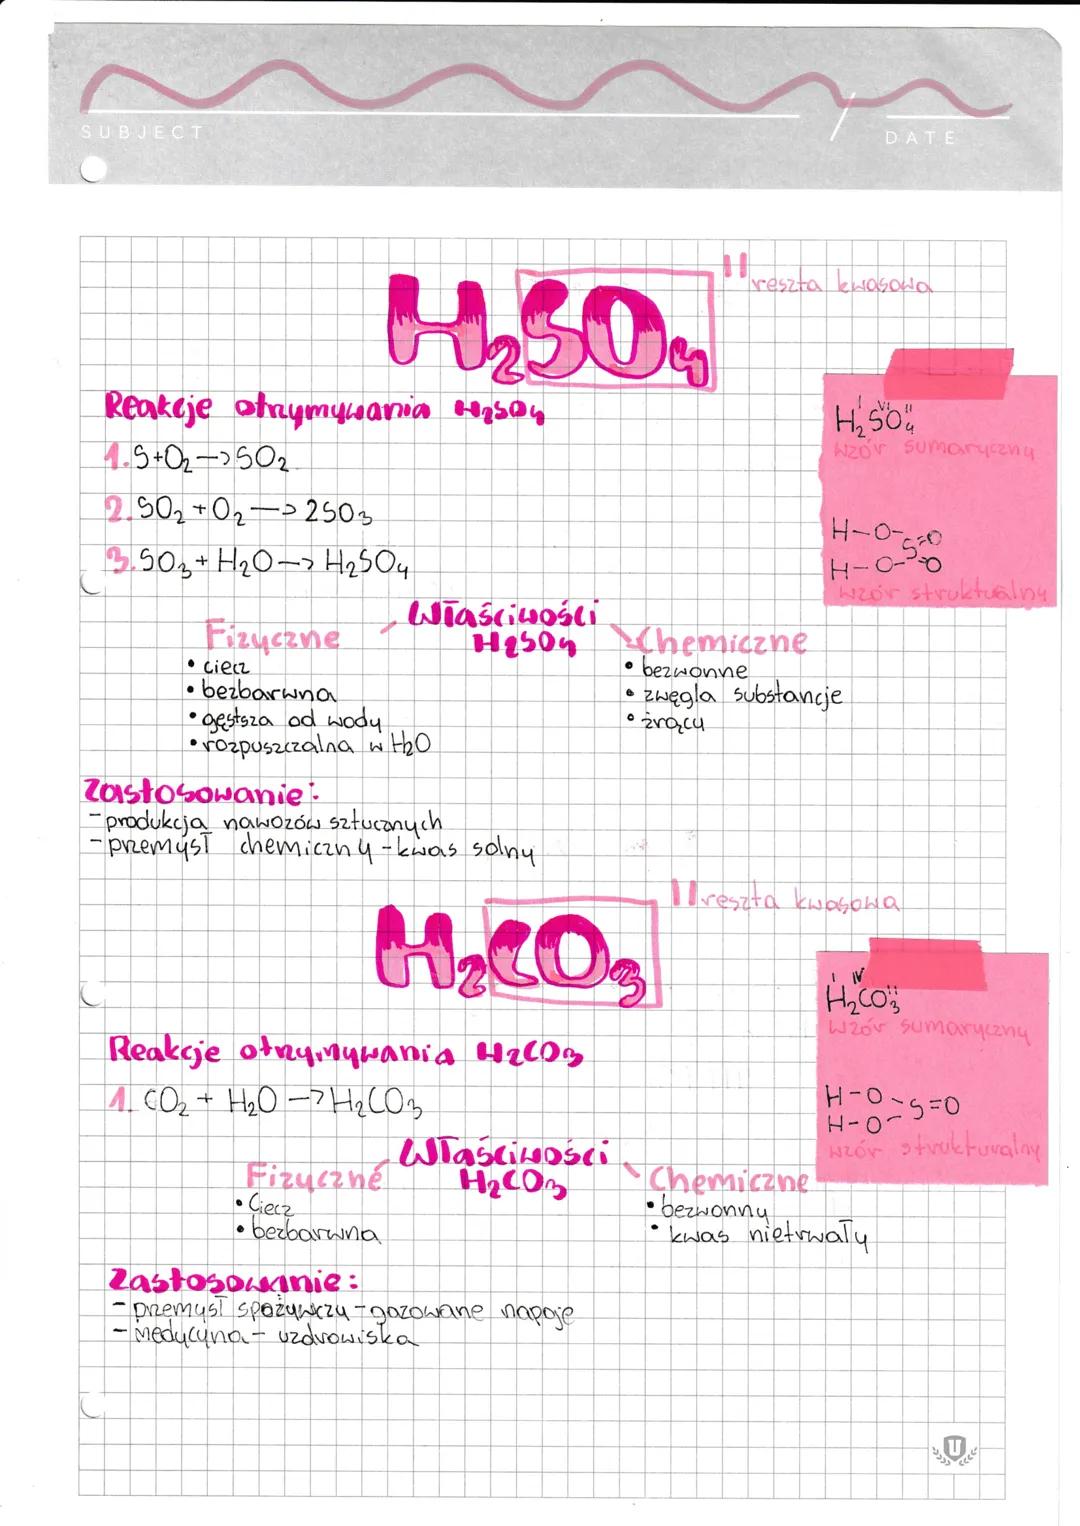 SUBJECT
DATE
II reszta kwasowa
H₂SO₄
Reakcje otrzymywania H₂SO₄
1. S+O₂→SO₂
2. SO₂+O₂→2SO₃
3. SO₃+H₂O→H₂SO₄
I VI II
H₂SO₄
wzór sumaryczny
H-O-S=O
H-O-S=O
wzór struktualny
Właściwości
H₂SO₄
Fizyczne
• ciecz
• bezbarwna
• gęstsza od wody
• rozpuszczalna w H₂O
Chemiczne
• bezwonne
• zwęgla substancje
• żrący
Zastosowanie:
-produkcja nawozów sztucznych
-przemysł chemiczny-kwas solny
II reszta kwasowa
H₂CO₃
Reakcje otrzymywania H₂CO₃
1. CO₂ + H₂O →H₂CO₃
I IV II
H₂CO₃
wzór sumaryczny
H-O-S=O
H-O-
wzór strukturalny
Właściwości
H₂CO₃
Fizyczne
• Ciecz
• bezbarwna
Chemiczne
• bezwonny
• kwas nietrwały
Zastosowanie:
-przemysł spożywczy-gazowane napoje
-medycyna- uzdrowiska
U